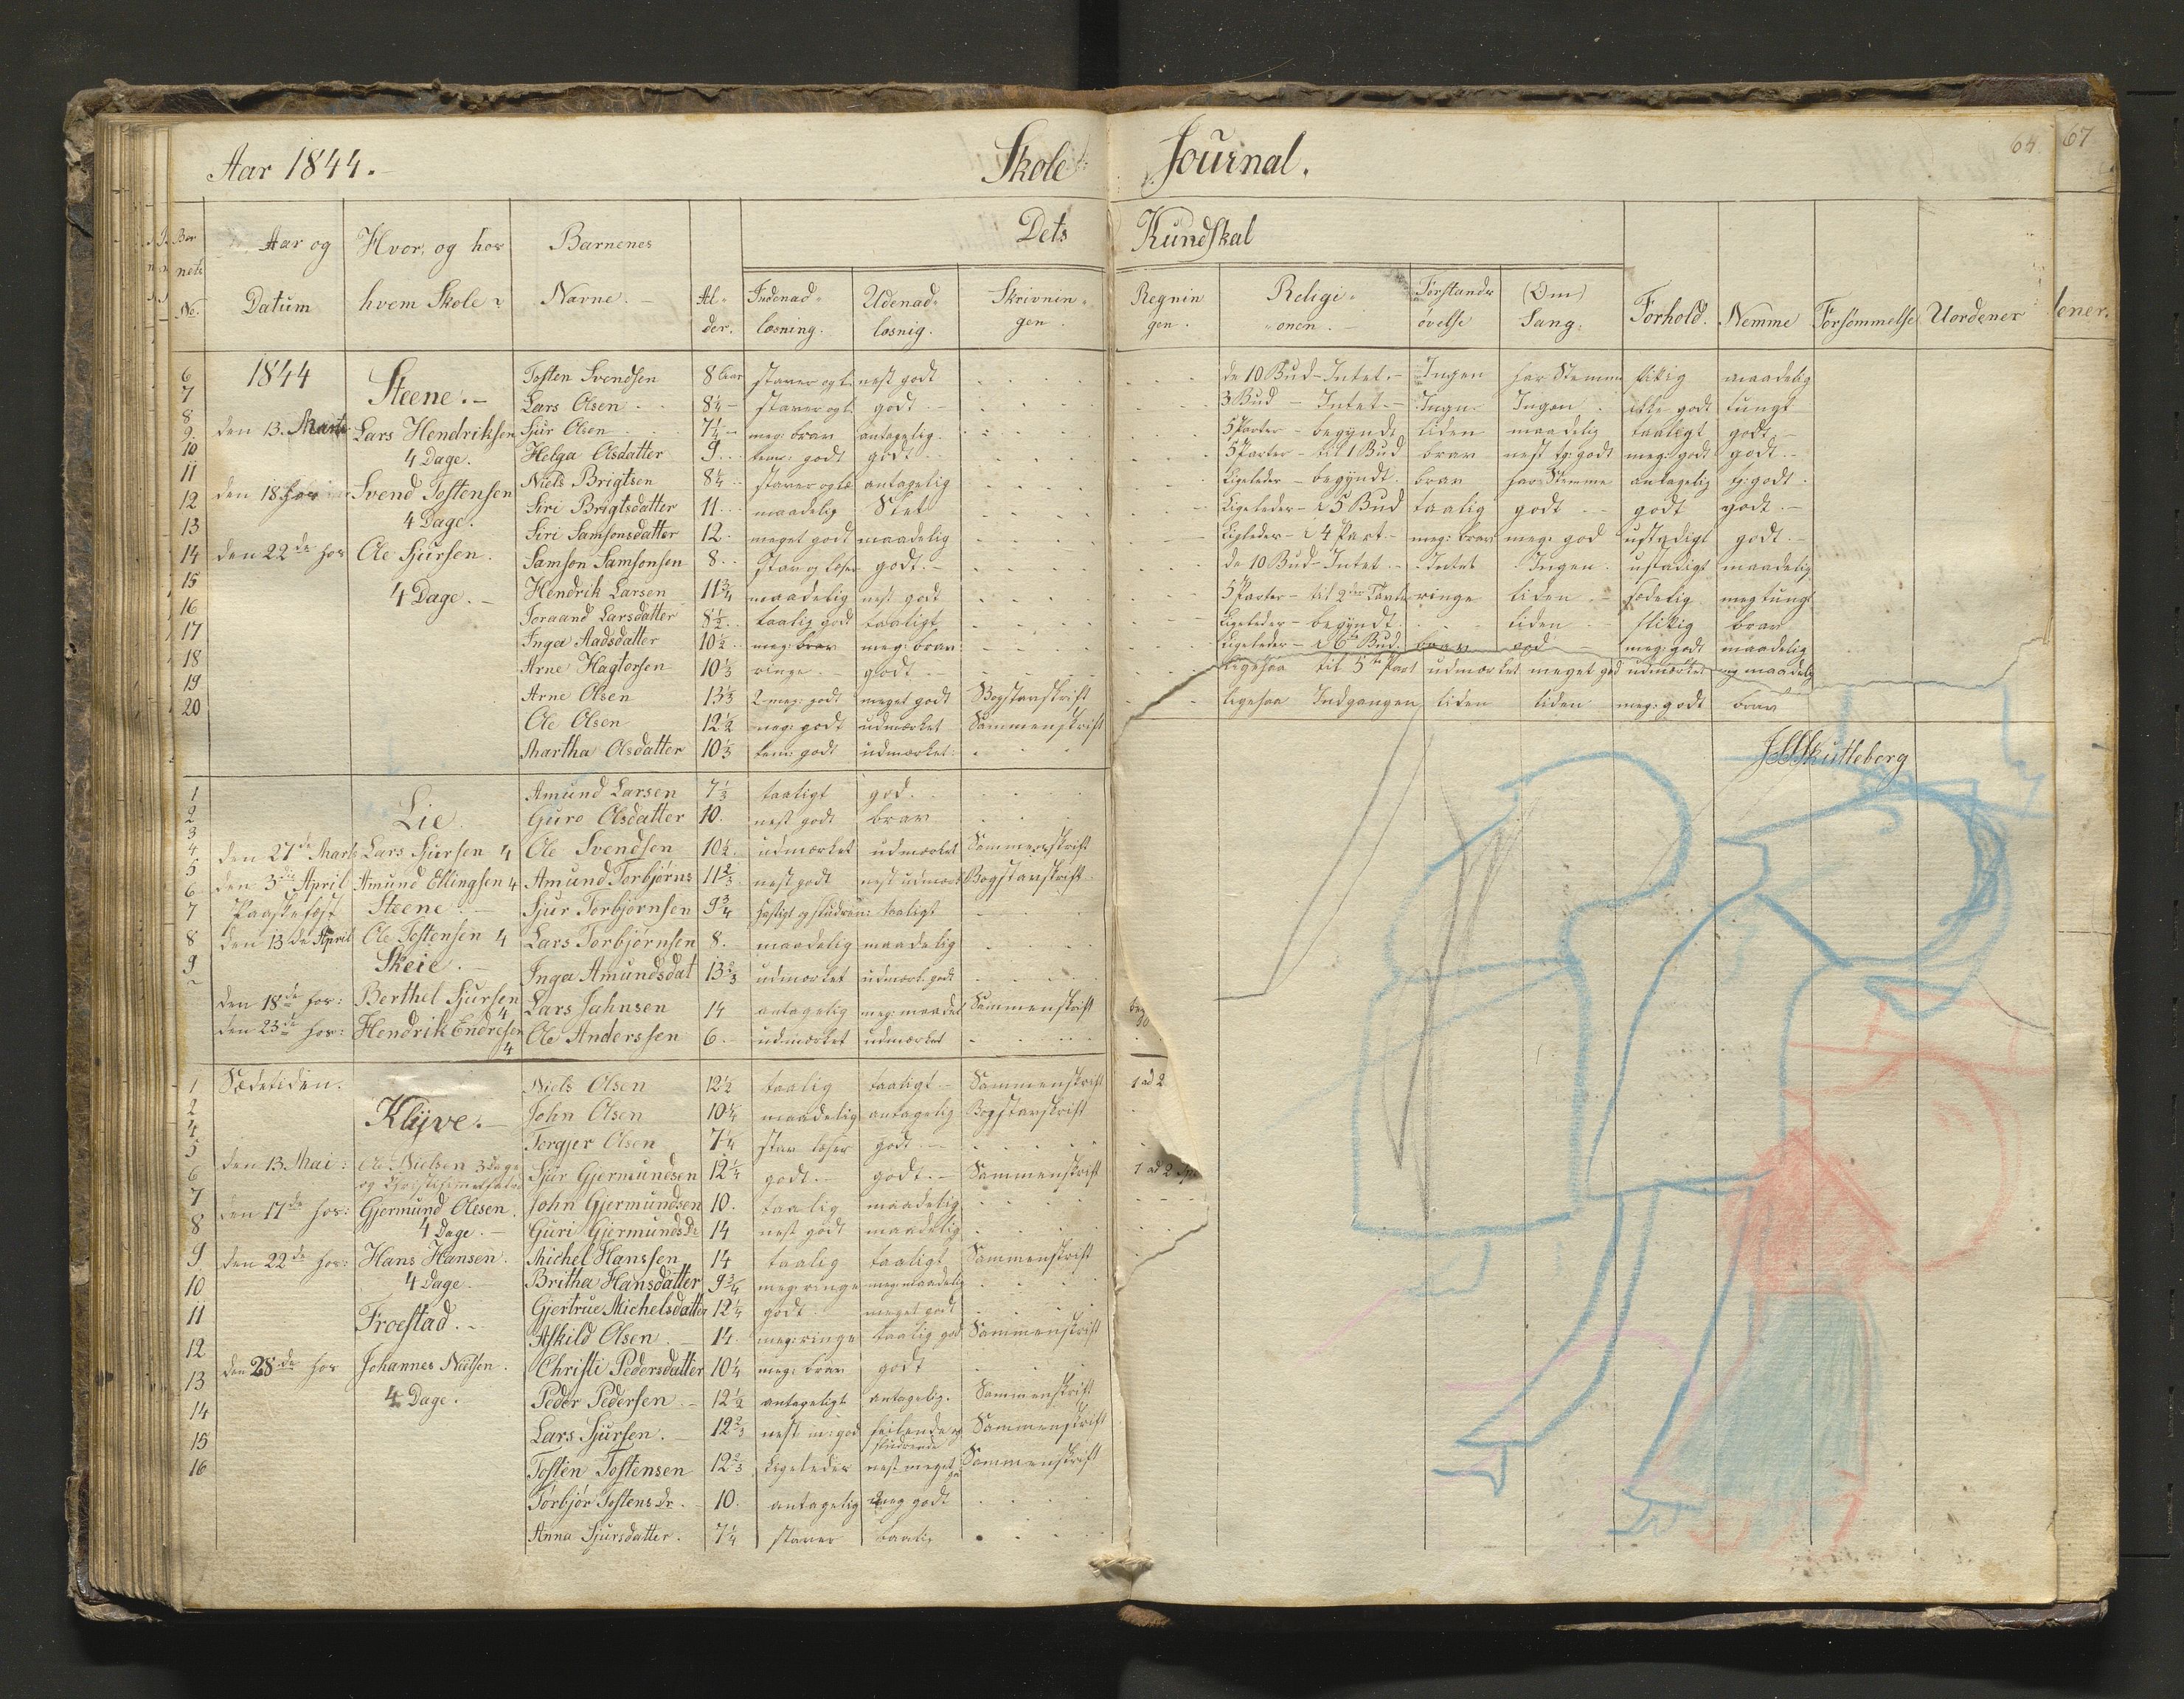 Aar 1844. Skole Journal. 64. 67
Dets Kundskab
Bar
nets
No.
Aar og
Datum
Hvor, og hos
hvem Skole
Barnenes
Navne.
Al-
der.
Indenad-
læsning.
Udenad-
læsnig.
Skrivnin-
gen.
Regnin
gen.
Religi-
onen.
Forstands
øvelse
(Om)
Sang.
Forhold. Nemme Forsømmelse Uordener
ener.
6 1844 Steene. Tosten Svendsen 8 Aar staver og l. nest godt de 10 Bud - Intet. Ingen har Stemme flitig maadelig
7 Lars Olsen 8¼ staver og l. godt 3 Bud - Intet Ingen Ingen ikke godt tungt
8 den 13. Marts Lars Hendriksen Sjur Olsen 7¼ meg: brav antagelig 5 Parter - begyndt liden maadelig taaligt godt
9. 4 Dage. Helga Olsdatter 9 tem: godt godt 5 Parter - til 1 Bud brav nest tg: godt meg: godt godt
10 den 18 hos Svend Tostensen Niels Brigtsen 8¼ staver og læ antagelig Ligeledes - begyndt brav har Stemme antagelig tg: godt
11 4 Dage. Siri Brigtsdatter 11 maadelig Slet Ligeledes - 5 Bud taalig godt godt godt
12 Siri Samsonsdatter 12. meget godt maadelig Ligeledes - 4 Part. meg: brav meg: god ustadigt godt
13 den 22de hos Ole Sjursen. Samson Samsonsen 8 stav og læser godt de 10 Bud - Intet Intet Ingen ustadigt maadelig
14 4 Dage. Hendrik Larsen 11¾ maadelig nest godt 5 Parter - til 2den Tavle ringe liden sædelig meg tungt
15 Toraand Larsdatter 8½ taalig godt taaligt Ligeledes - begyndt liden flitig brav
16 Inga Aadsdatter 10½ meg: brav meg: brav Ligeledes - 6te Bud brav god meg: godt maadelig
17 Arne Hagtorsen 10⅓ ringe godt ligesaa til 5te Part udmærket meget god udmærket maadelig
18 Arne Olsen 13⅓ meg: godt meget godt Bogstavskrift ligesaa Indgangen liden liden meg: godt brav
19 Ole Olsen 12½ meg: godt udmærket Sammenskrift
20 Martha Olsdatter 10⅓ tem: godt udmærket
Skutleberg
1 Amund Larsen 7⅓ taaligt god
2 Lie Guro Olsdatter 10. nest godt brav
3 den 27de Marts Lars Sjursen 4 Ole Svendsen 10½ udmærket udmærket Sammenskrift
4 den 3die April Amund Ellingsen 4 Amund Torbjørns 11⅔ nest godt nest udmærk Bogstavskrift
5 Paaskefest Steene Sjur Torbjørnsen 9¾ hastigt og studren: taaligt
6 den 13de April Ole Tostensen 4 Lars Torbjørnsen 8. maadelig maadelig
7 Skeie. Inga Amundsdat 13⅔ udmærket udmærk. godt
8 den 18de hos: Berthel Sjursen 4 Lars Jahnsen 14 antagelig meg: maadel Sammenskrift
9 den 23de hos: Hendrik Endresen 4 Ole Anderssen 6 udmærket udmærket
1 Sædetiden. Niels Olsen 12½ taalig taaligt Sammenskrift 1 ad 2
2 Klÿve. John Olsen 10¼ maadelig antagelig Bogstavskrift
4 Torgjer Olsen 7¼ stav læser godt
5 den 13. Mai: Ole Nielsen 3 Dage Sjur Gjermundsen 12¼ godt godt Sammenskrift 1 ad 2
og Christi himmelfarts
6 den 17de hos: Gjermund Olesen. John Gjermundsen 10. taalig maadelig
7 4 Dage. Guri Gjermundsdr 14 nest godt maadelig
8 den 22de hos: Hans Hansen. Michel Hanssen 14 taalig taaligt Sammenskrift
9 4 Dage. Britha Hansdatter 9¾ meg: ringe meg: maadelig
10 Froestad. Gjertrue Michelsdatter 12¼ godt meget godt
11 Askild Olsen 14. meg: ringe taalig god Sammenskrift
12 den 28de hos Johannes Nielsen. Christi Pedersdatter 10¼ meg: brav godt
13 4 Dage. Peder Pedersen 12½ antageligt antagelig. Sammenskrift
14 Lars Sjursen. 12⅔ nest m: god feilende og studrende Sammenskrift
15 Tosten Tostensen 12⅔ Ligeledes nest meget Sammenskrift
16 Torbjør Tostensdr. 10. antagelig meg godt
Anna Sjursdatter. 7¼ staver taalig